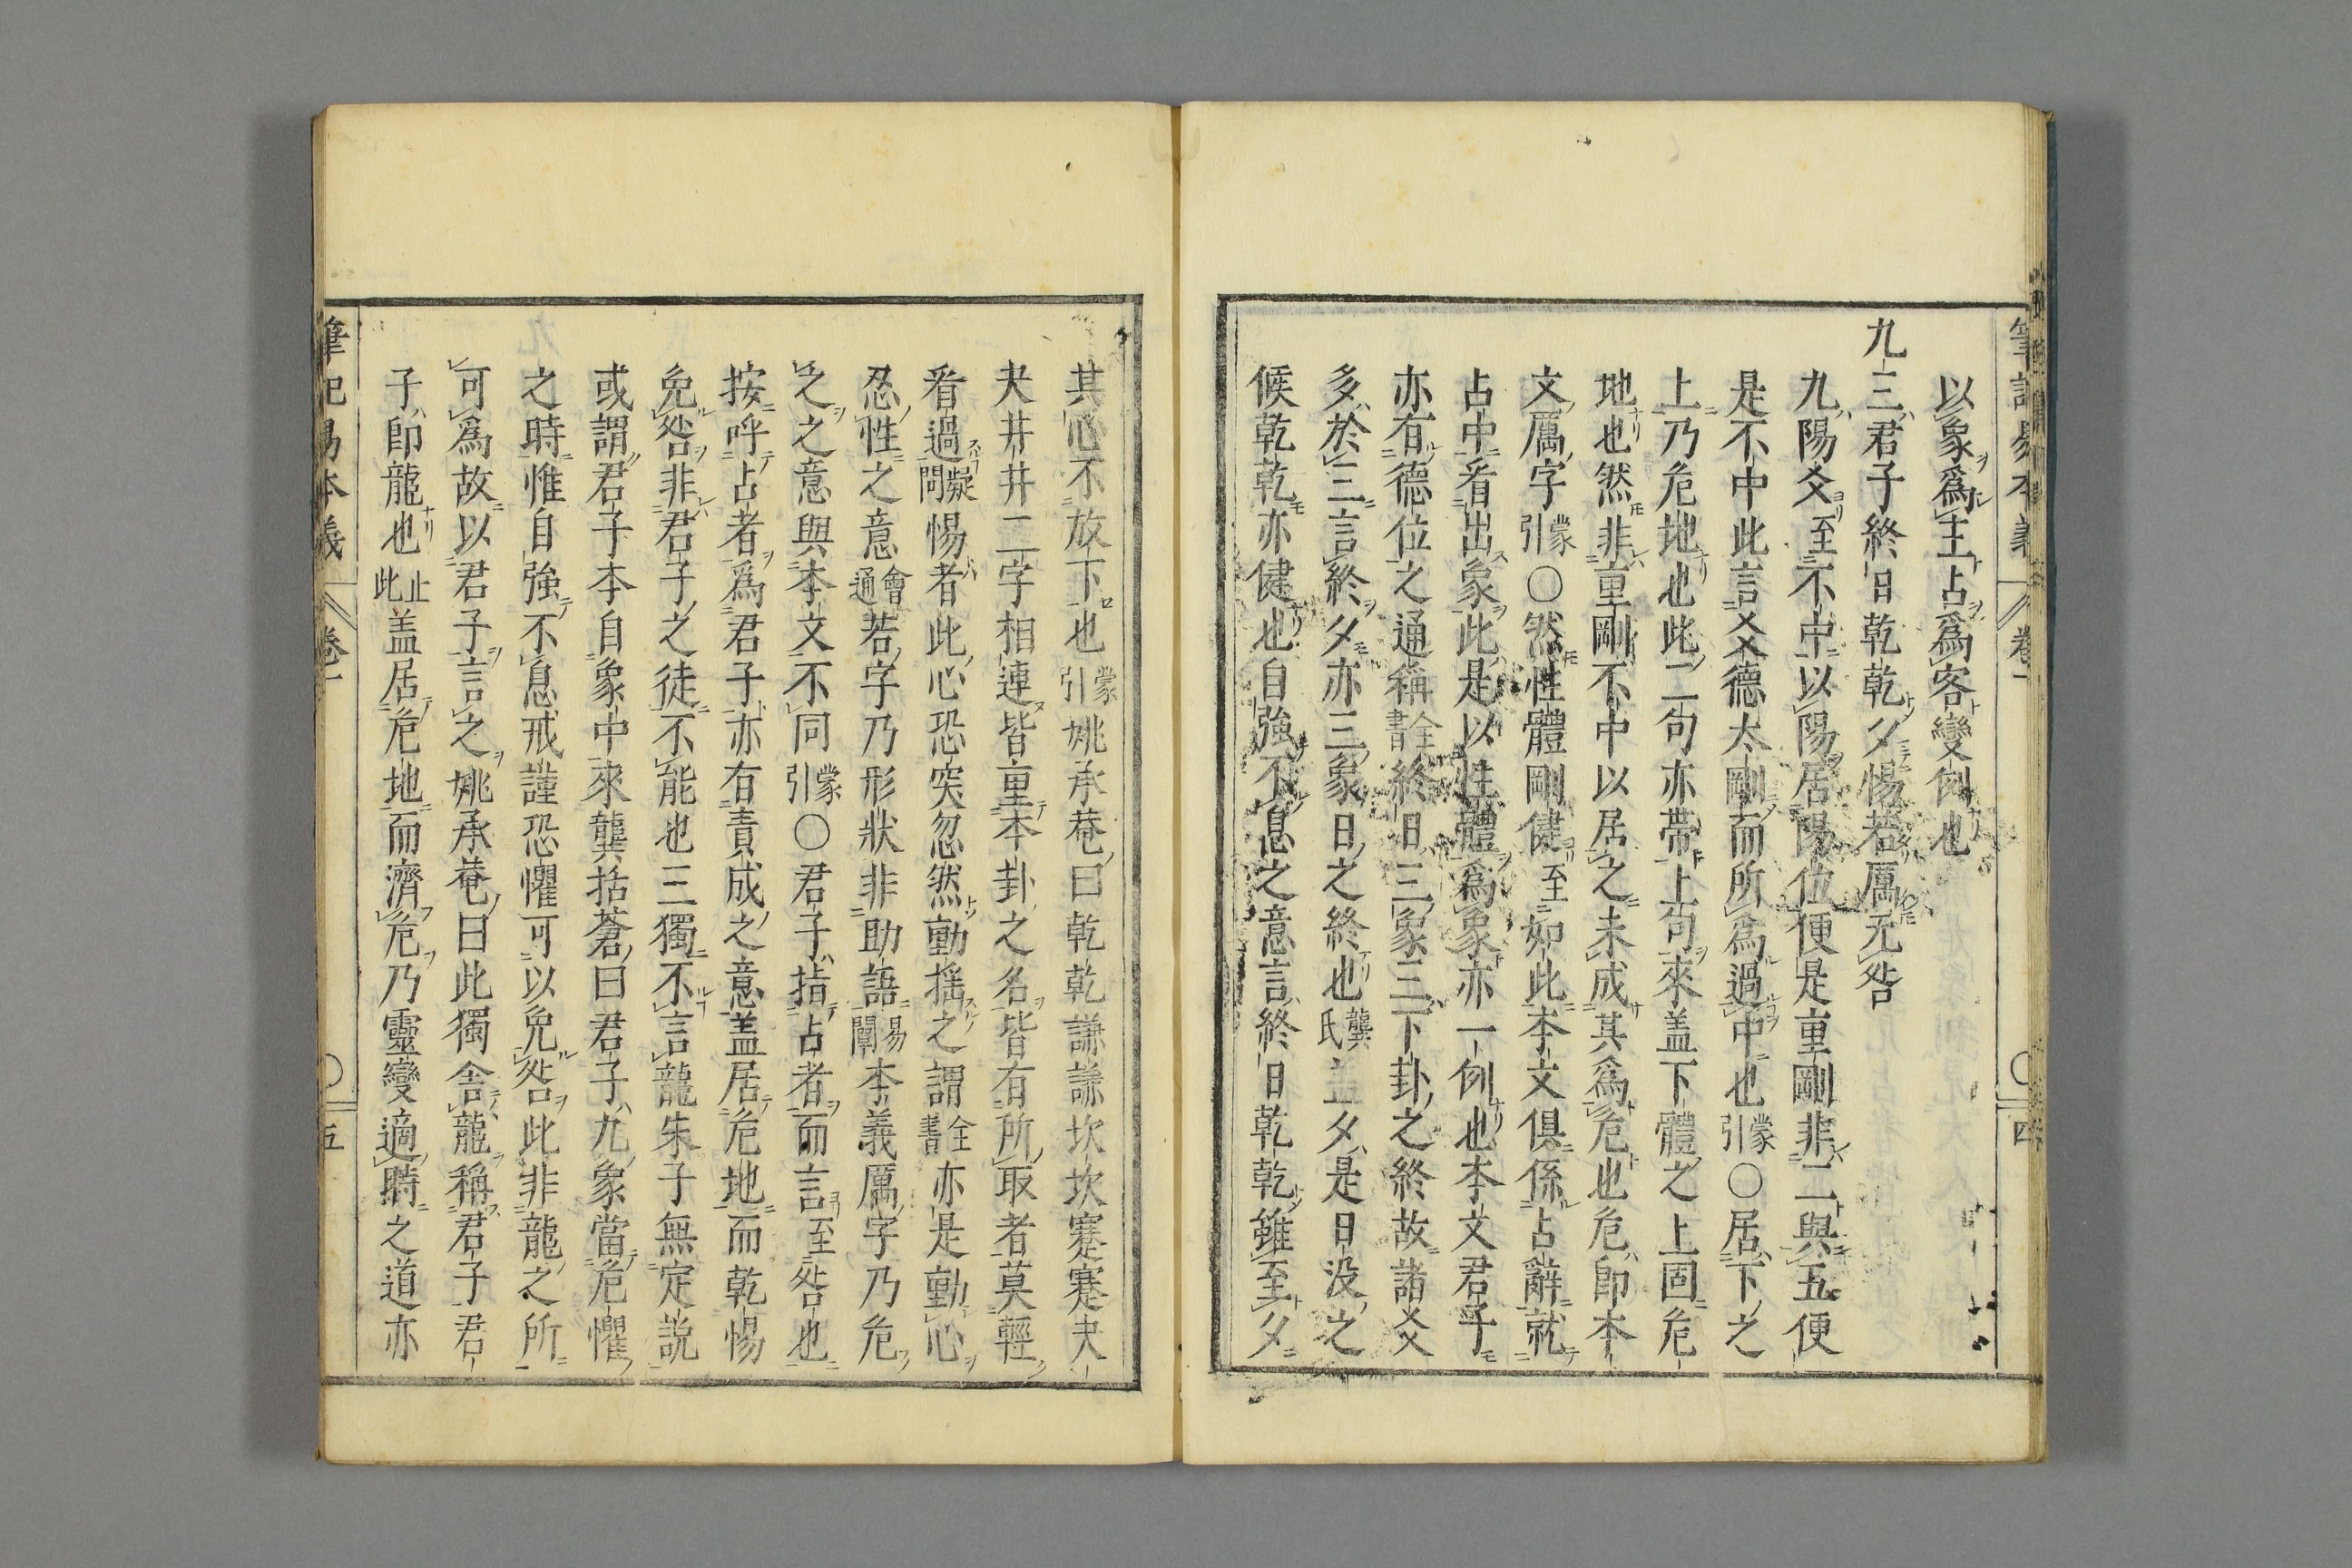 以象爲主占爲客變例也
九三君子終日乾乾夕惕若厲无咎
九陽爻至不中以陽居陽位便是重剛非二與五便
是不中此言爻德太剛而所爲過中也蒙引〇居下之
上乃危地也此二句亦帶上句來盖下體之上固危
地也然非重剛不中以居之未成其爲危也危即本
文厲字蒙引〇然性體剛健至如此本文俱係占辭就
占中看出象此是以性體爲象亦一例也本文君子
亦有德位之通稱全書終日三象三下卦之終故諸爻
多於三言終夕亦三象日之終也龔氏盖夕是日没之
候乾乾亦健也自強不息之意言終日乾乾雖至夕
筆記易本義 卷一 〇 四
其心不放下也蒙引姚承菴曰乾乾謙謙坎坎蹇蹇夬
夬井井二字相連皆重本卦之名皆有所取者莫輕
看過疑問惕者此心恐突忽然動揺之謂全書亦是動心
忍性之意會通若字乃形狀非助語易闡本義厲字乃危
之之意與本文不同蒙引〇君子指占者而言至咎也
按呼占者爲君子亦有責成之意盖居危地而乾惕
免咎非君子之徒不能也三獨不言龍朱子無定説
或謂君子本自象中來龔括蒼曰君子九象當危懼
之時惟自強不息戒謹恐懼可以免咎此非龍之所
可爲故以君子言之姚承菴曰此獨舍龍稱君子君
子即龍也止此盖居危地而濟危乃靈變適時之道亦
筆記易本義 卷一 〇 五